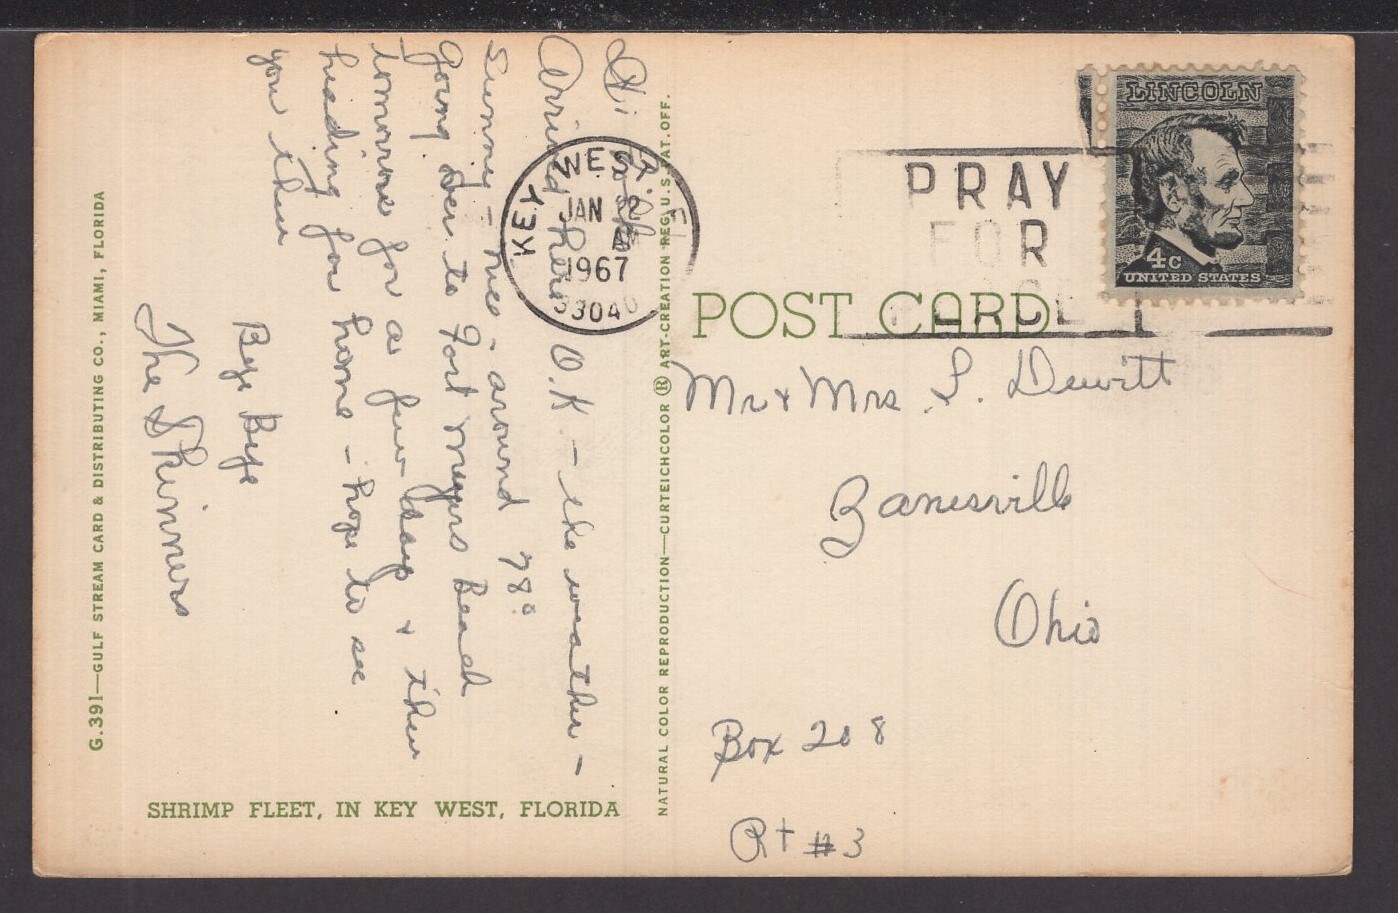 Hi
Arrived here O.K. - the weather -
Sunny - nice - around 78°
Going over to Fort Meyers Beach
tomorrow for a few days & then
heading for home - hope to see
you then
Bye Bye
The Skinners
G.391—GULF STREAM CARD & DISTRIBUTING CO., MIAMI, FLORIDA
SHRIMP FLEET, IN KEY WEST, FLORIDA
NATURAL COLOR REPRODUCTION—CURTEICHCOLOR ® ART-CREATION REG. U.S. PAT. OFF.
KEY WEST FL
JAN 12
AM
1967
33040
PRAY
FOR
LINCOLN
4c
UNITED STATES
POST CARD
Mr & Mrs S. Dewitt
Zanesville
Ohio
Box 208
Rt #3